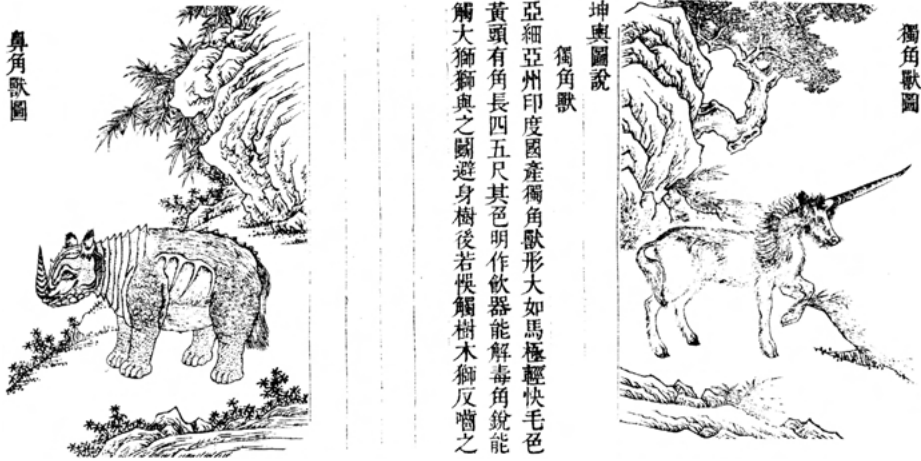 獨角獸圖
坤輿圖說
獨角獸
亞細亞州印度國產獨角獸形大如馬極輕快毛色
黃頭有角長四五尺其色明作飲器能解毒角銳能
觸大獅獅與之鬬避身樹後若悞觸樹木獅反嚙之
鼻角獸圖